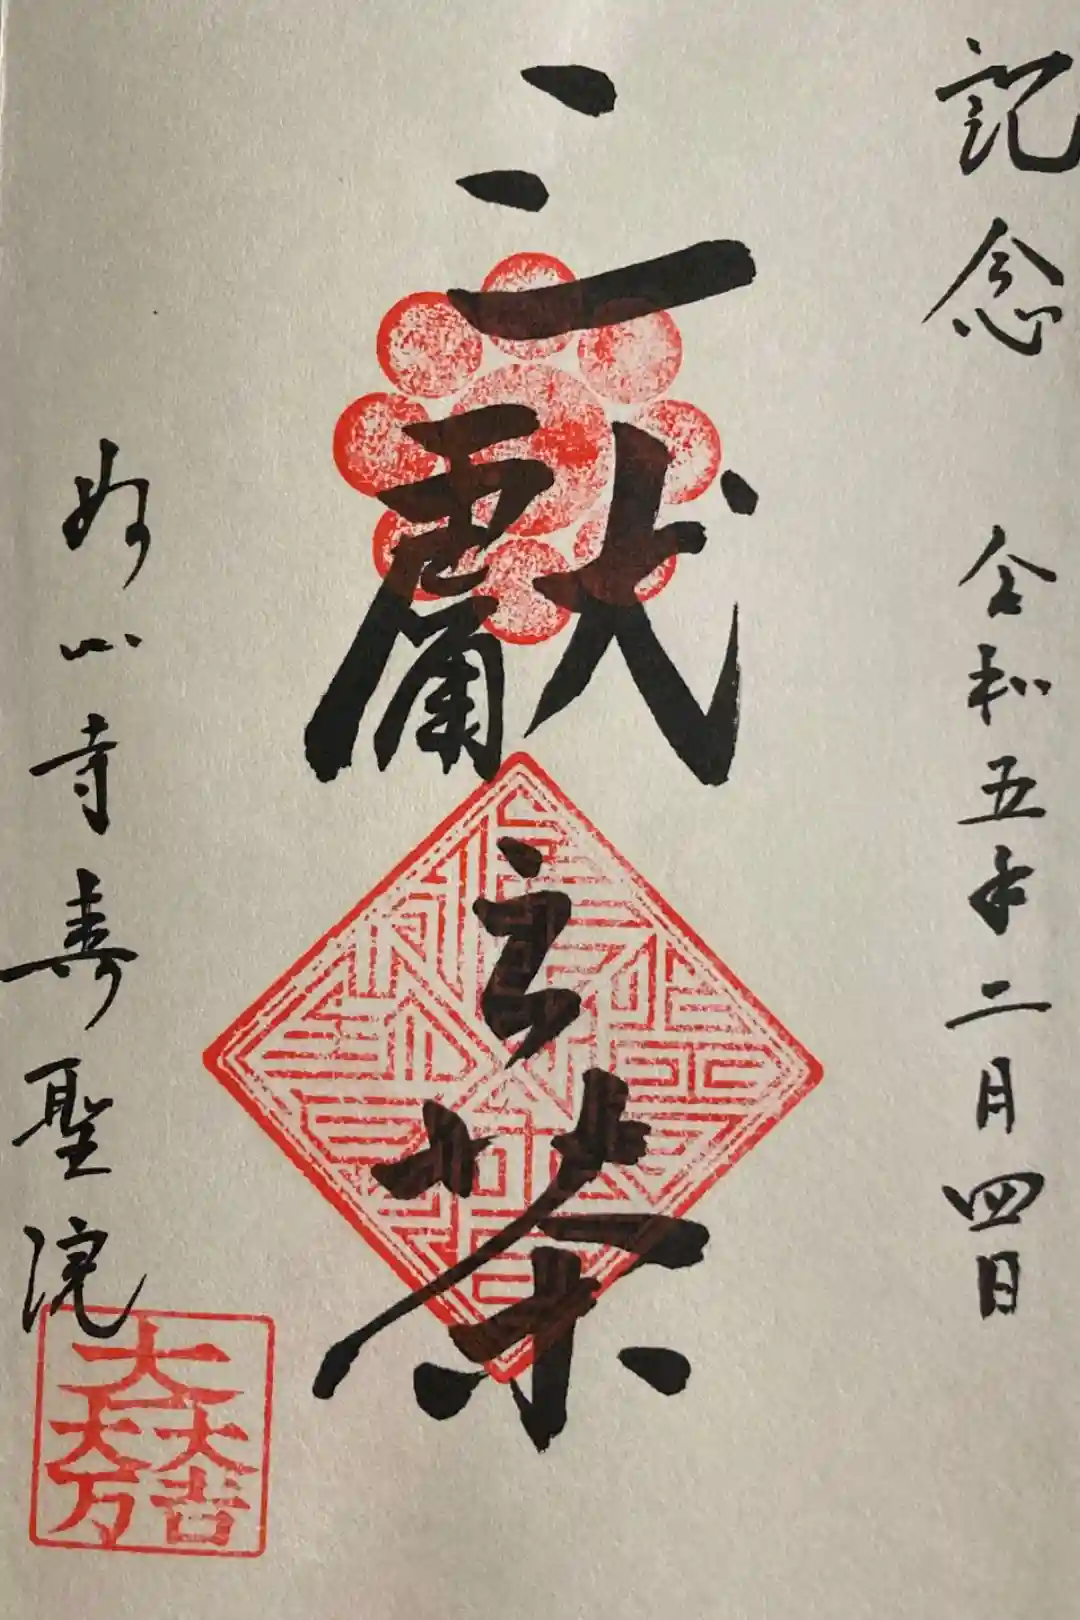 記念 令和五年二月四日
三獻之茶
妙心寺寿聖院
大一大吉大万